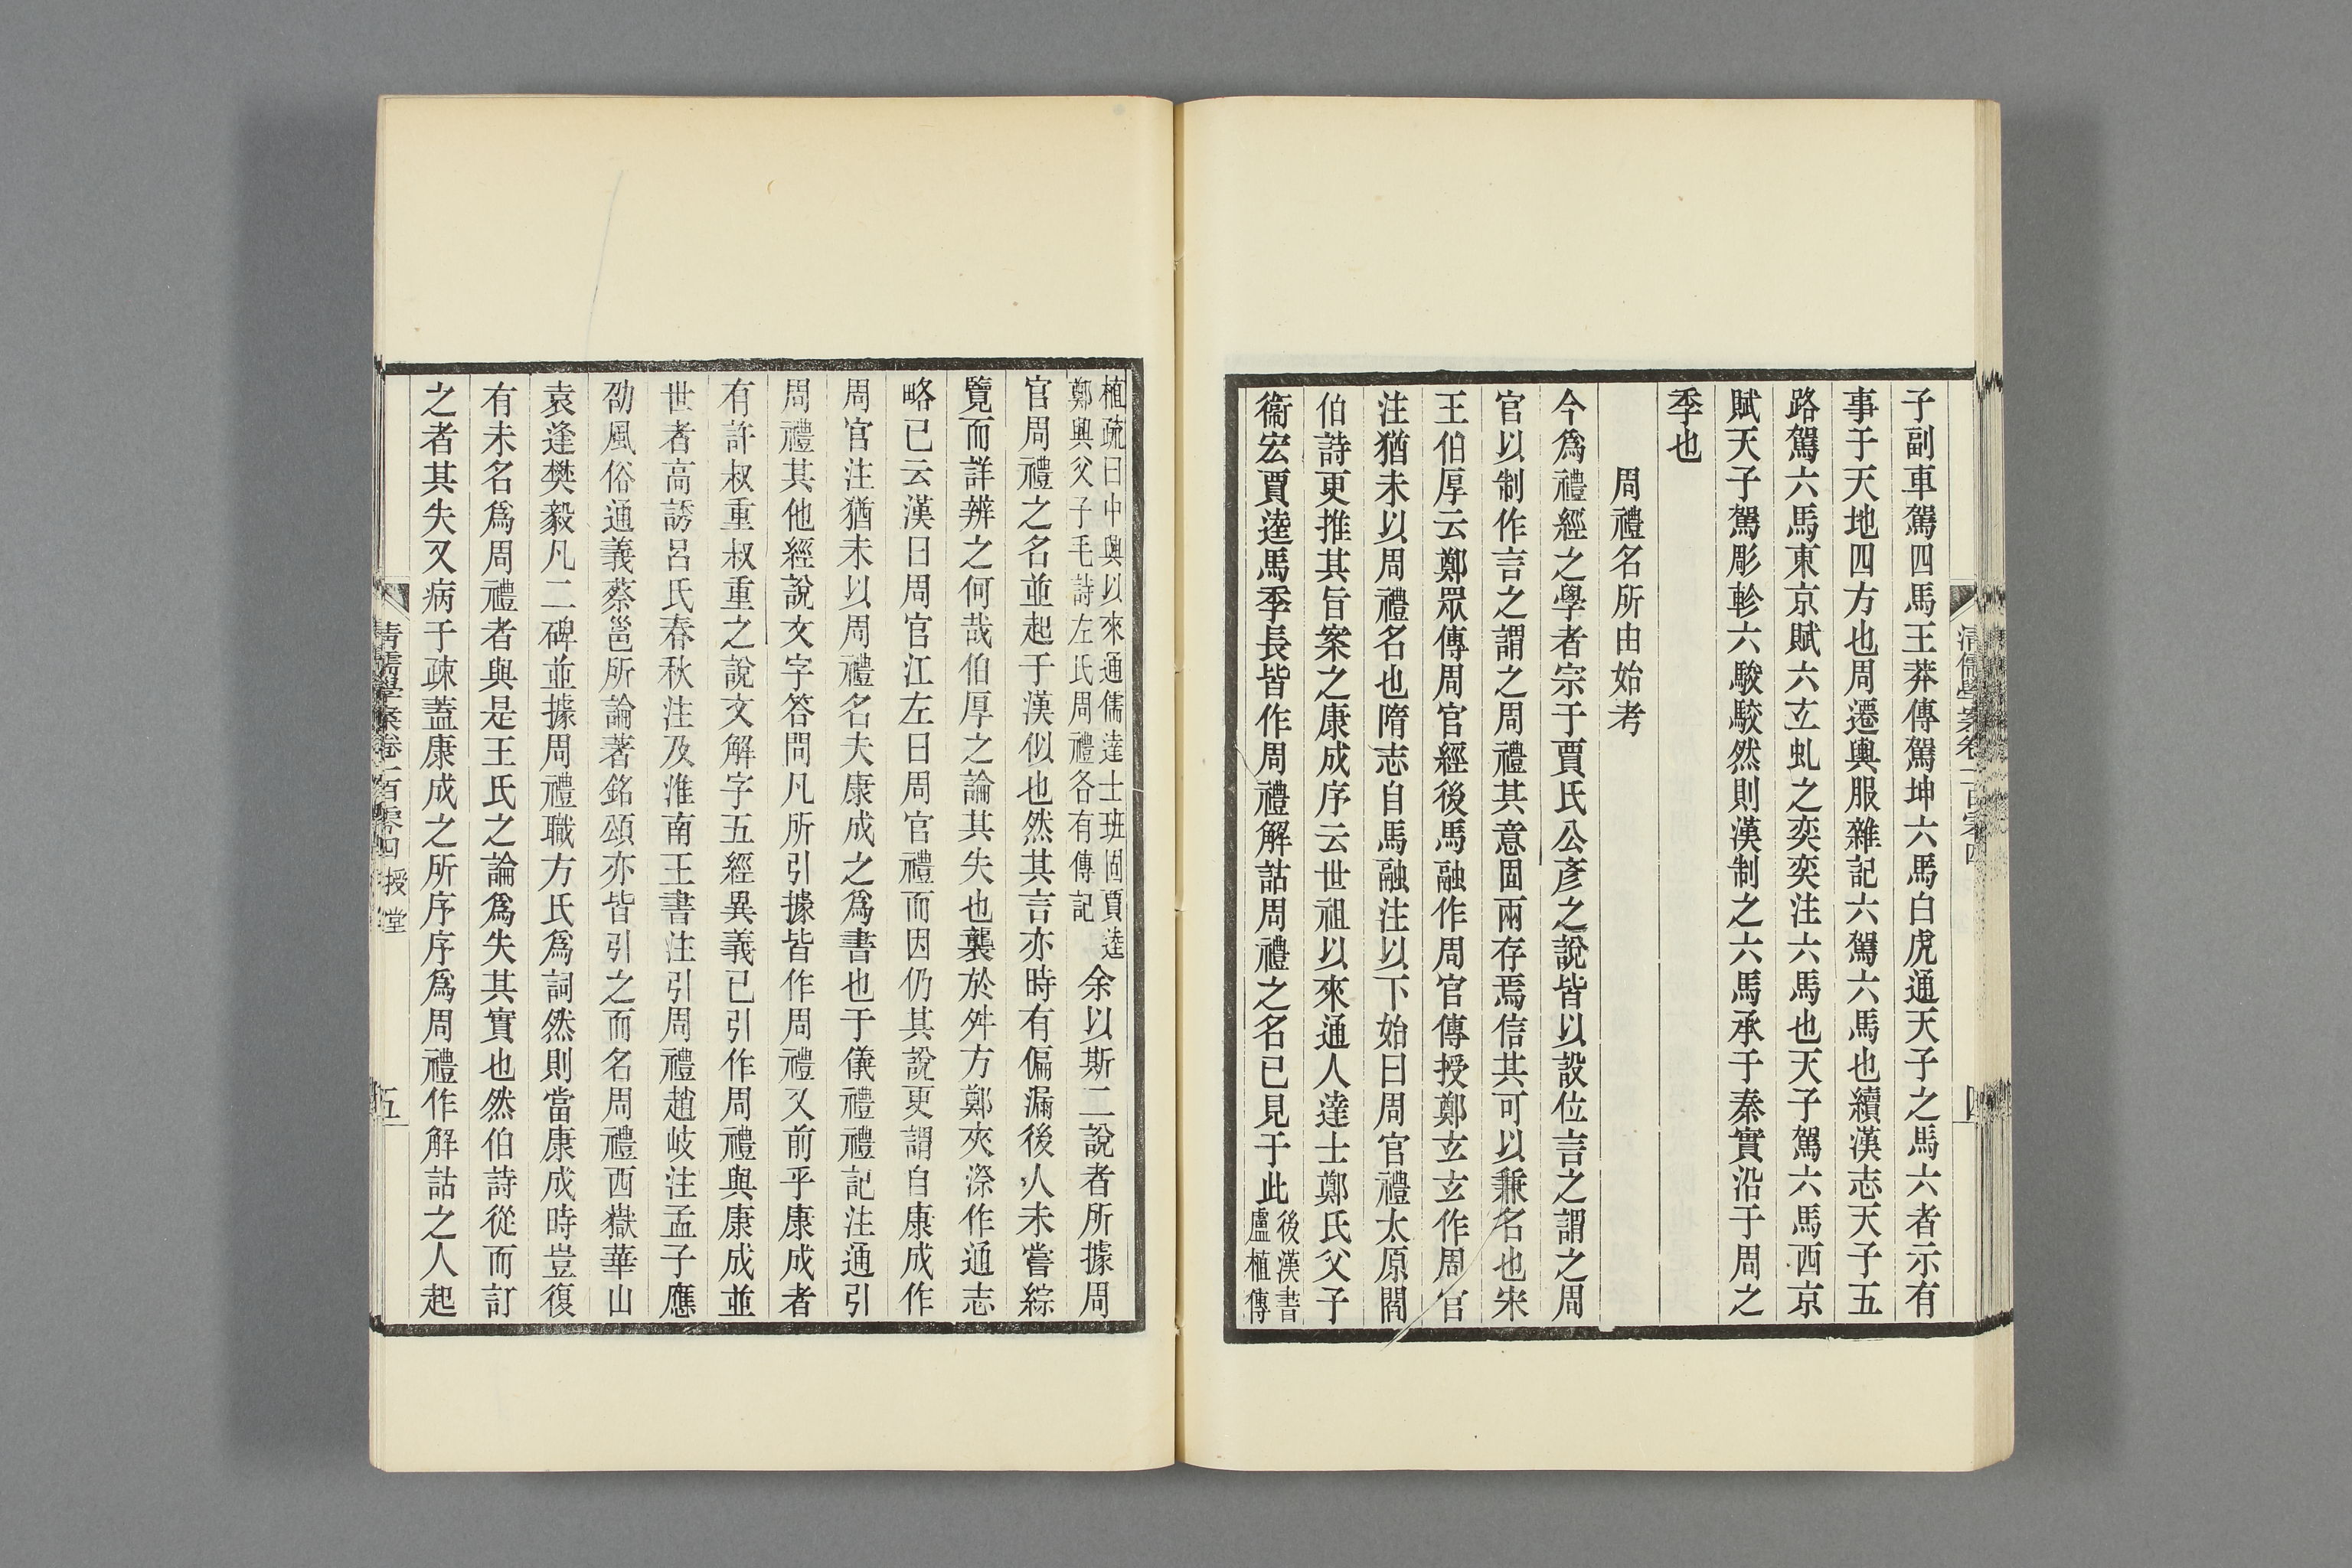 子副車駕四馬王莽傳駕坤六馬白虎通天子之馬六者示有
事于天地四方也周遷輿服雜記六駕六馬也續漢志天子五
路駕六馬東京賦六玄虬之奕奕注六馬也天子駕六馬西京
賦天子駕彫軫六駿駮然則漢制之六馬承于秦實沿于周之
季也
周禮名所由始考
今爲禮經之學者宗于賈氏公彥之說皆以設位言之謂之周
官以制作言之謂之周禮其意固兩存焉信其可以兼名也宋
王伯厚云鄭眾傳周官經後馬融作周官傳授鄭玄玄作周官
注猶未以周禮名也隋志自馬融注以下始曰周官禮太原閻
伯詩更推其旨案之康成序云世祖以來通人達士鄭氏父子
衞宏賈逵馬季長皆作周禮解詁周禮之名已見于此後漢書
盧植傳
清儒學案卷一百零四
四
植疏曰中興以來通儒達士班固賈逵
鄭興父子毛詩左氏周禮各有傳記余以斯二說者所據周
官周禮之名並起于漢似也然其言亦時有偏漏後人未嘗綜
覽而詳辨之何哉伯厚之論其失也襲於舛方鄭夾漈作通志
略已云漢曰周官江左曰周官禮而因仍其說更謂自康成作
周官注猶未以周禮名夫康成之爲書也于儀禮禮記注通引
周禮其他經說文字答問凡所引據皆作周禮又前乎康成者
有許叔重叔重之說文解字五經異義已引作周禮與康成並
世者高誘呂氏春秋注及淮南王書注引周禮趙岐注孟子應
劭風俗通義蔡邕所論著銘頌亦皆引之而名周禮西嶽華山
袁逢樊毅凡二碑並據周禮職方氏爲詞然則當康成時豈復
有未名爲周禮者與是王氏之論爲失其實也然伯詩從而訂
之者其失又病于疎蓋康成之所序序爲周禮作解詁之人起
清儒學案卷一百零四 授堂
五